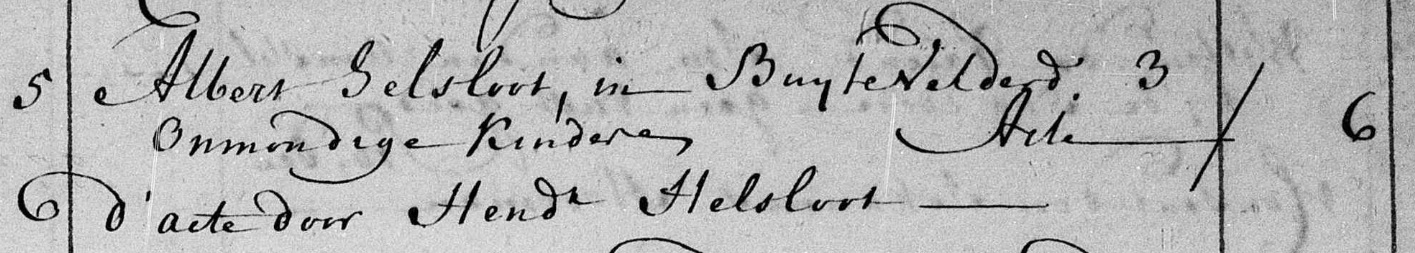 5 Albert Helsloot, in BuyteVelderd. 3
Onmondige Kinderen Acte 6
6 d'acte door Hendr Helsloot